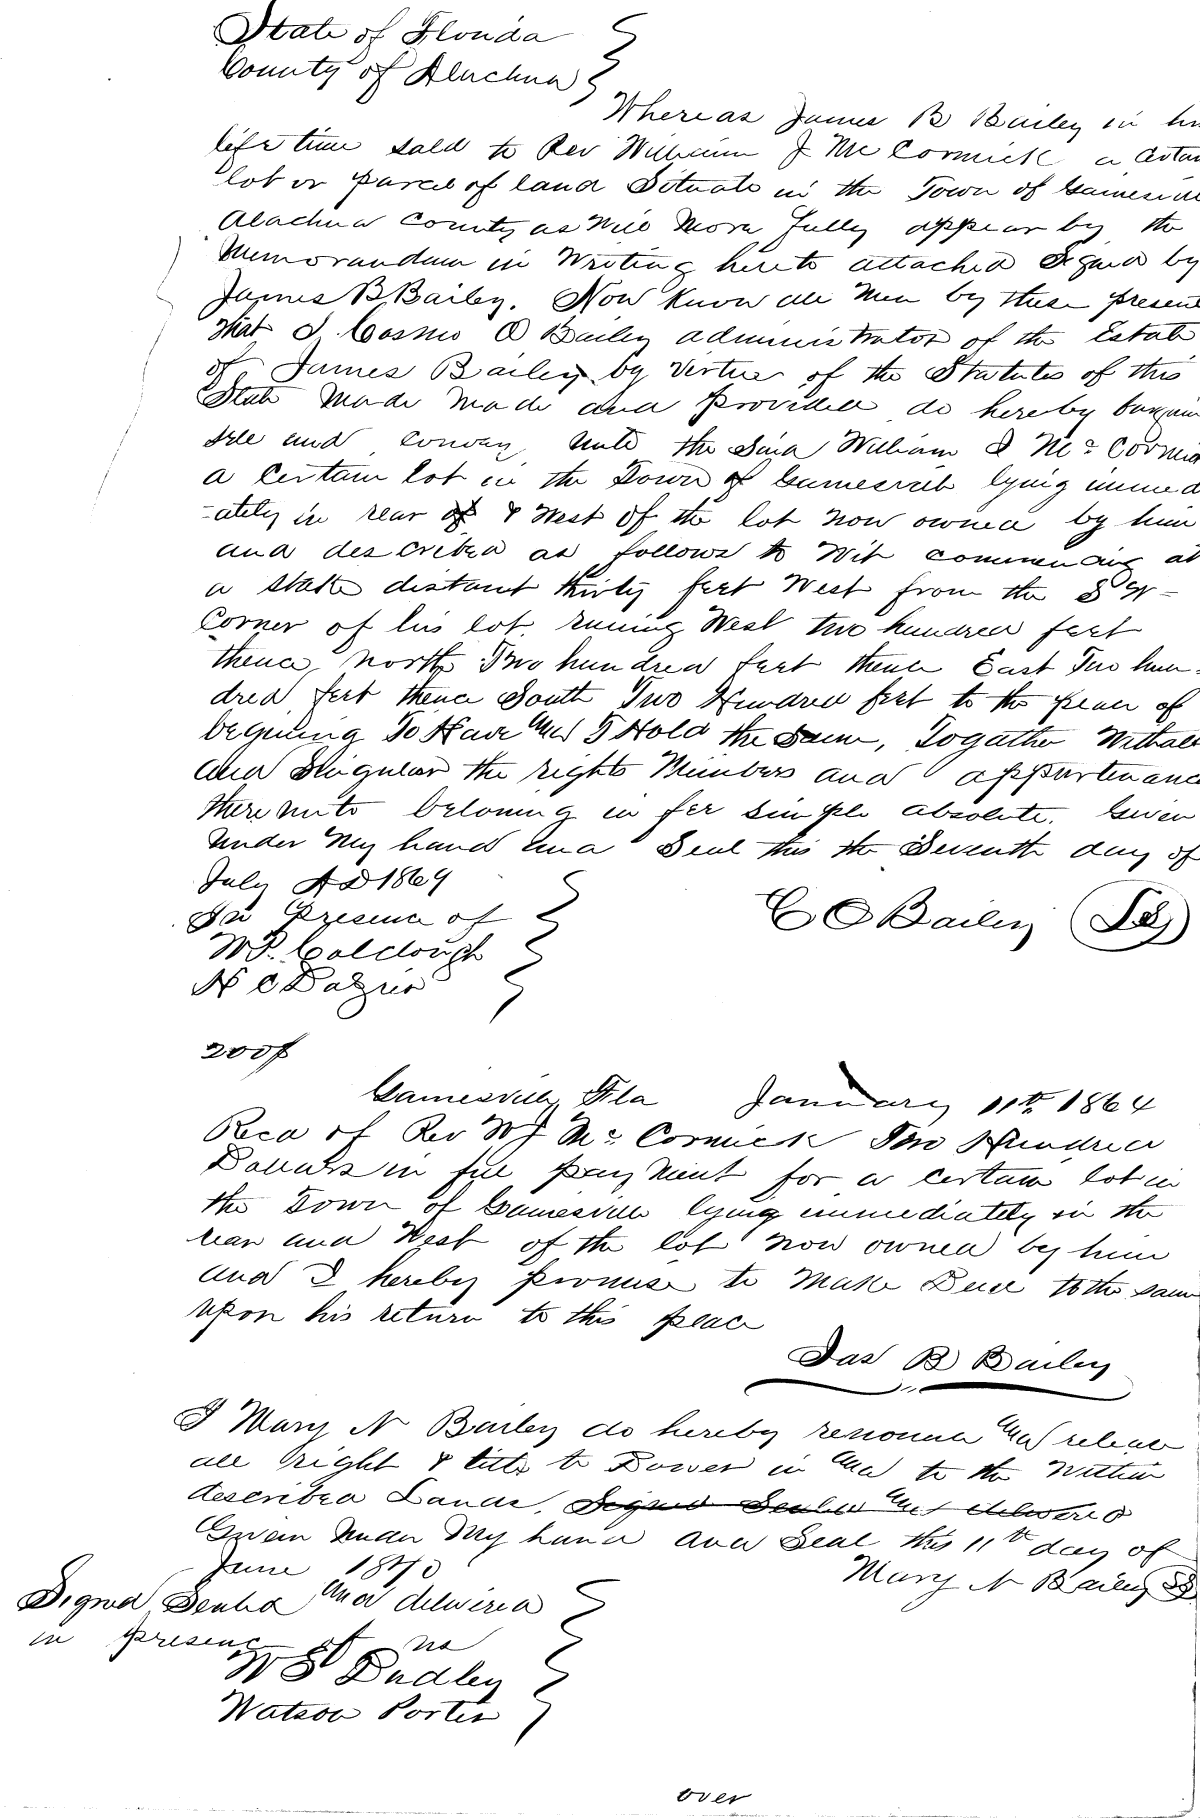 State of Florida
County of Alachua
Whereas James B Bailey in his
life time sold to Rev William J McCormick a certain
lot or parcel of land Situate in the Town of Gainesville
Alachua County as will more fully appear by the
Memorandum in Writing hereto attached Signed by
James B Bailey. Now Know all Men by these present
that I Cosmo O Bailey administrator of the Estate
of James Bailey by Virtue of the Statutes of this
State Made Made and Provided do hereby bargain
sell and convey unto the Said William J McCormick
a Certain lot in the Town of Gainesville lying immedi
-ately in rear & West of the lot now owned by him
and described as follows to Wit commencing at
a stake distant thirty feet West from the S W-
Corner of his lot. runing West two hundred feet
thence north Two hundred feet thence East Two hun-
dred feet thence South Two Hundred feet to the place of
begining To Have and To Hold the Same, Togather With all
and Singular the rights Members and appurtenances
thereunto beloning in fee simple absolute. Given
under My hand and Seal this the Seventh day of
July AD 1869
In Presence of
C O Bailey
W P. Coldough
N C Dozier
200$
Gainesville Fla January 11th 1864
Recd of Rev W J McCormick Two Hundred
Dollars in full payment for a certain lot in
the Town of Gainesville lying immediately in the
rear and West of the lot now owned by him
and I hereby promise to Make Deed to the same
upon his return to this place
Jas B Bailey
I Mary N Bailey do hereby renounce and release
all right & title to Dower in and to the Within
described Lands. Signed Sealed and delivered
Given Under My hand and Seal this 11th day of
June 1870
Mary N Bailey
Signed Sealed and delivered
in presence of us
W S Dudley
Watson Porter
over